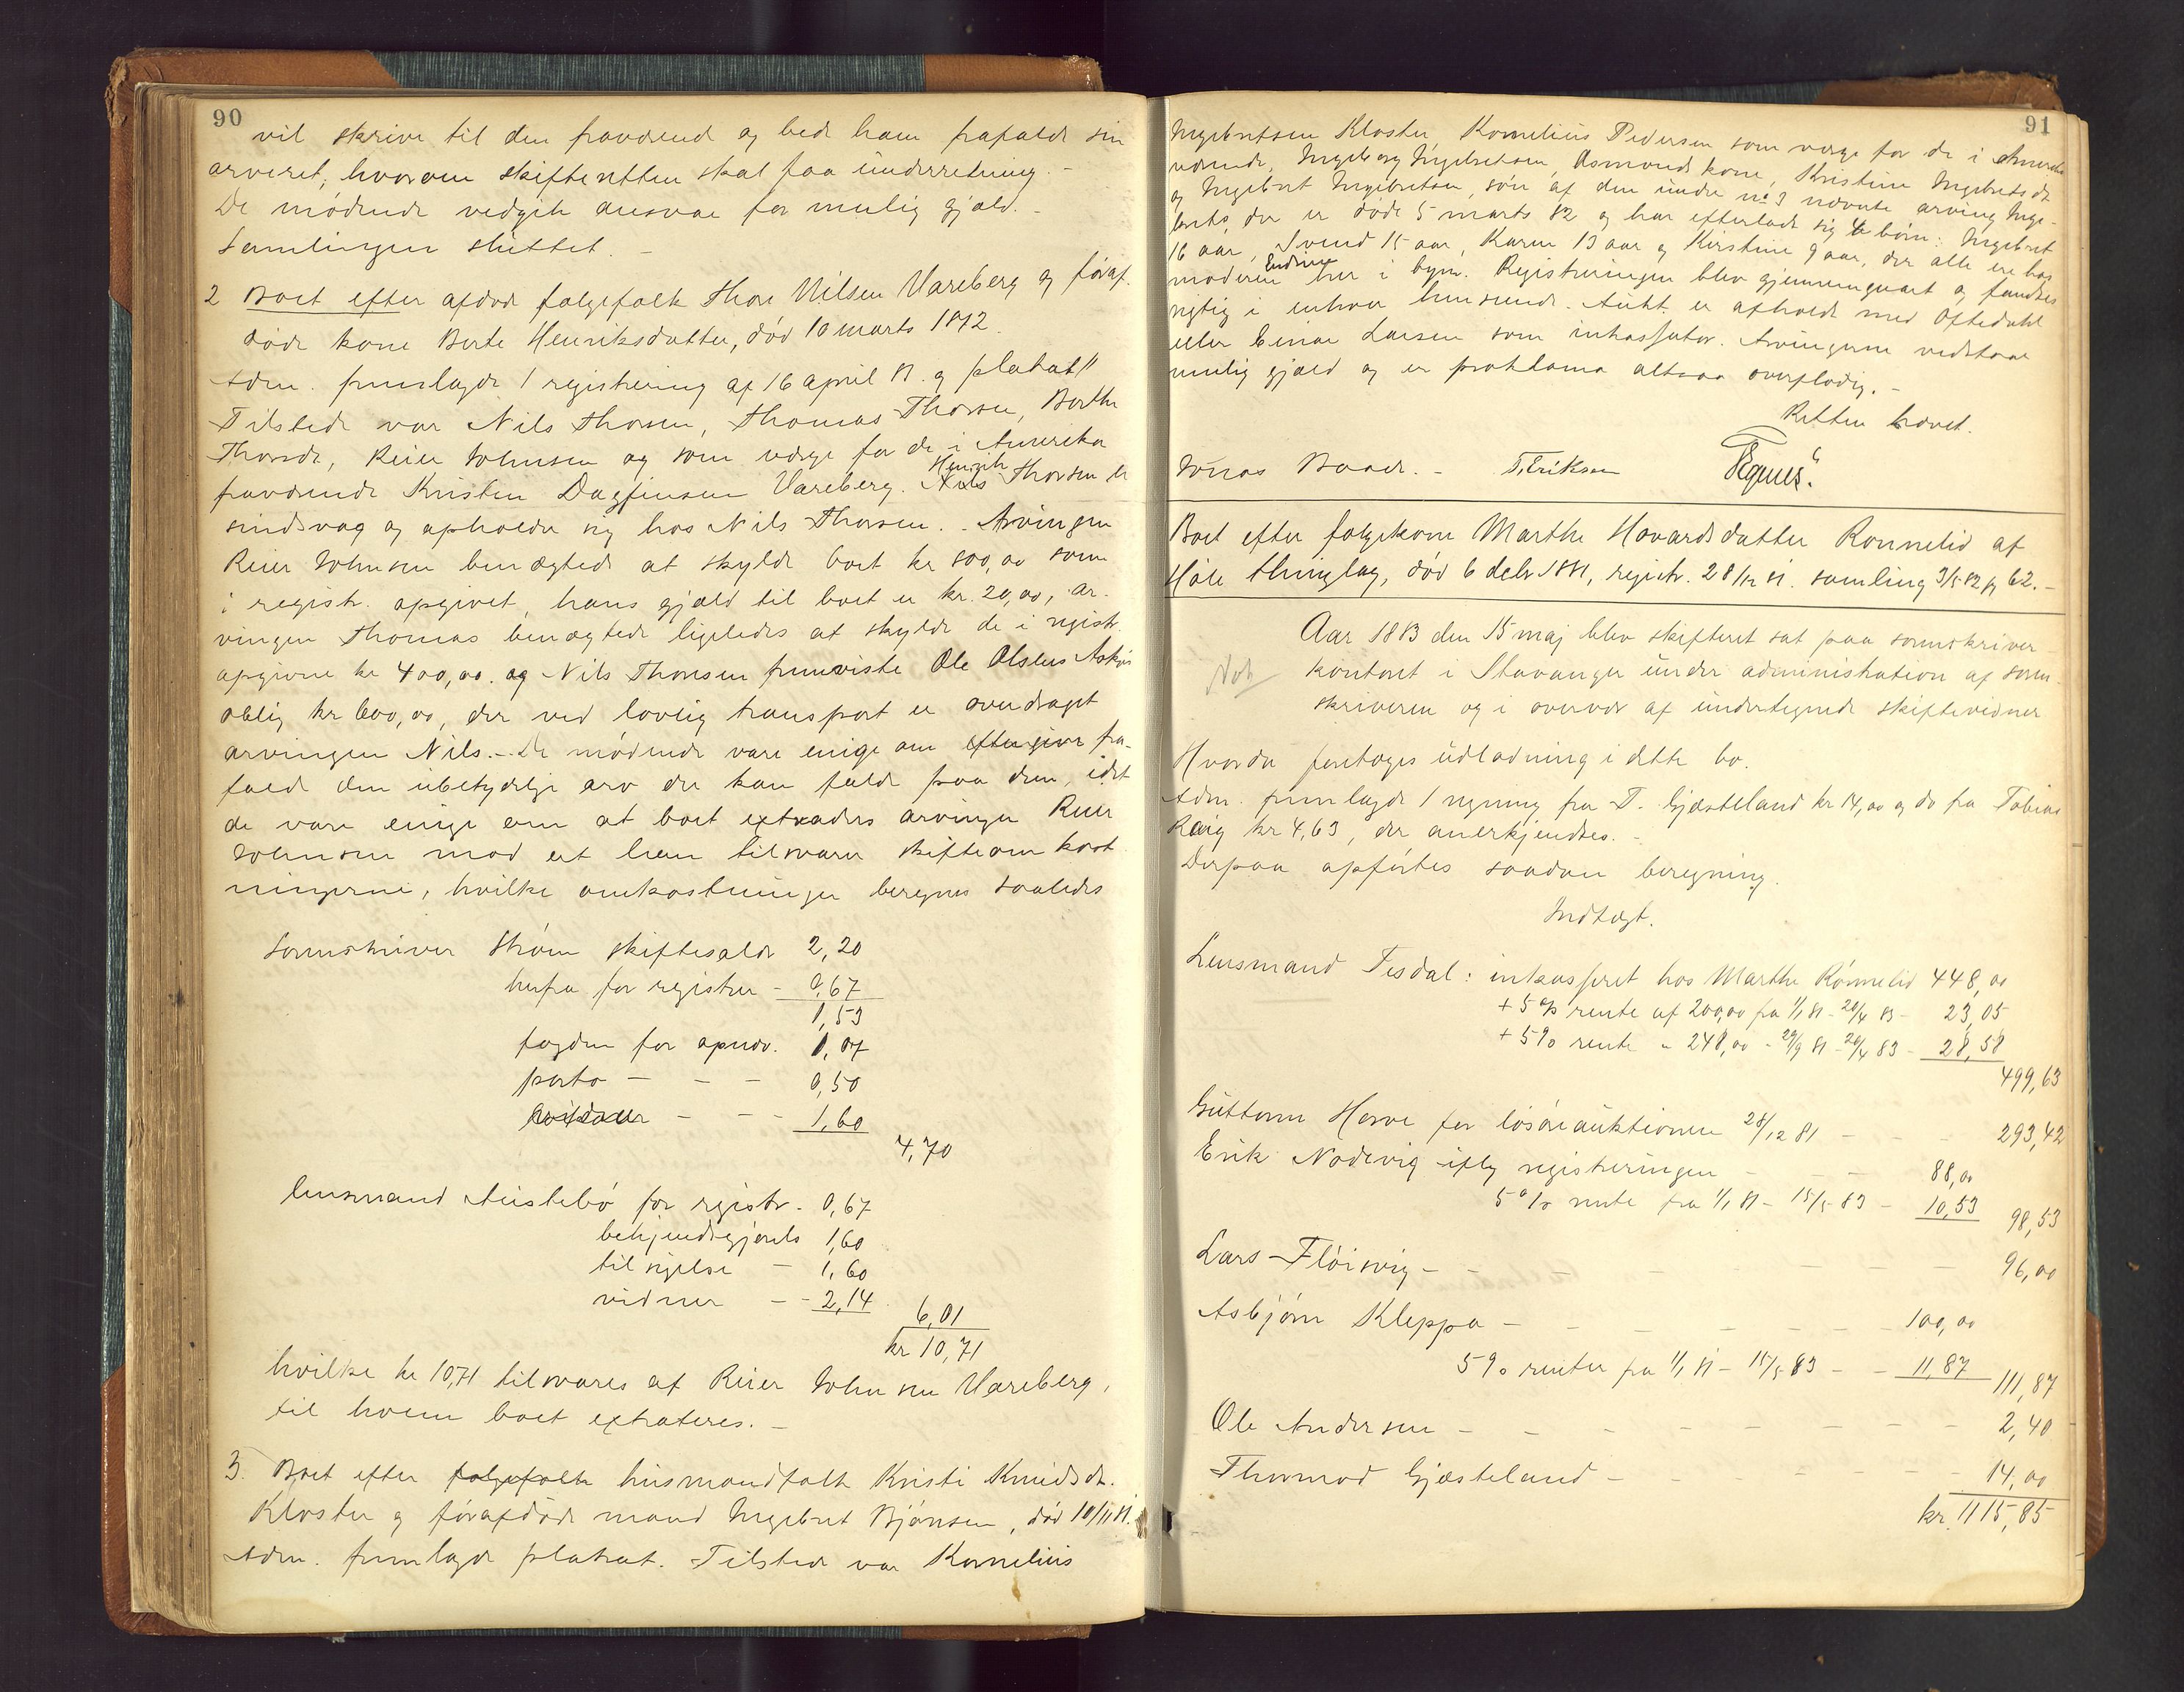 90
vil skrive til den fraværende og bede ham frafalde sin
arveret, hvorom skifteretten skal faa underretning. -
De mødende vedgik ansvar for mulig gjæld. -
Samlingen sluttet. -
2 Boet efter afdøde folgefolk Thore Nilsen Vareberg og föraf-
døde kone Berte Henriksdatter, död 10 marts 1872.
Adm. fremlagde 1 registrering af 16 april 81. og plakat
Tilstede var Nils Thorsen, Thomas Thorsen, Berthe
Thorsdr, Reier Johnsen og som værge for de i Amerika
fraværende Kristen Dagfinsen Vareberg. Nils Henrik Thorsen er
sindsvag og opholder sig hos Nils Thorsen. - Arvingen
Reier Johnsen benægtede at skylde boet kr 800,00 som
i registr. opgivet, hans gjæld til boet er kr. 20,00, ar-
vingen Thomas benægtede ligeledes at skylde de i registr.
opgivne kr 400,00. og Nils Thorsen fremviste Ole Olsens
oblig kr 600,00, der ved lovlig transport er overdraget
arvingen Nils. - De mødende vare enige om eftergive fra-
falde den ubetydelige arv der kan falde paa dem, idet
de vare enige om at boet extraderes arvingen Reier
Johnsen mod at han tilsvarer skifteomkost
ningerne, hvilke omkostninger beregnes saaledes
Sorenskriver Strøm skiftesalær 2,20
herfra for registrer - 0,67
1,53
fogden for opnæv. 1,07
porto - - - 0,50
- - - 1,60
4,70
lensmand Austebø for registr. 0,67
bekjendtgjørels 1,60
tilsigelse - 1,60
vidner - - 2,14
6,01
kr 10,71
hvilke kr 10,71 tilsvares af Reier Johnsen Vareberg,
til hvem boet extraderes. -
3. Boet efter folgefolk husmandsfolk Kristi Knudsdr.
Kloster og förafdöde mand Ingebret Bjönsen, död 10/11 81.
Adm. fremlagde plakat. Tilstede var Kornelius
91
Ingebretsen Kloster, Kornelius Pedersen som værge for de i Amerika
værende, Ingeborg Ingebretsen, Asmonds kone, Kristine Ingebretsdr
og Ingebret Ingebretsen, sön af den under no 3 nævnte arving Inge-
brets, der er döde 5 marts 82 og har efterladt sig 4 börn: Ingebret
16 aar, Svend 15 aar, Karen 13 aar og Kirstine 9 aar, der alle ere hos
moderen Endrine her i byen. Registreringen blev gjennemgaaet og fandtes
rigtig i enhver henseende. Aukt. er afholdt med Oftedahl
eller Einar Larsen som inkassator. Arvingerne vedtaar
mulig gjæld og er proklama altsaa overflödig. -
Retten hævet.
Jonas Baade. - T. Eriksen
Boet efter folgekone Marthe Hovardsdatter Ronnelid af
Höle thinglag, död 6 decbr 1881, registr. 28/12 81. samling 3/5 82 pg 62. -
Not
Aar 1883 den 15 maj blev skifteret sat paa sorenskriver-
kontoret i Stavanger under administration af soren-
skriveren og i overvær af undertegnede skiftevidner
Hvorda foretoges udlodning i dette bo.
Adm. fremlagde 1 regning fra T. Gjæsteland kr 14,00 og do fra Tobias
kr 4,63, der anerkjendtes. -
Derpaa opførtes saadan beregning.
Indtægt.
Lensmand Tisdal: inkasseret hos Marthe Rönnelid 448,00
+ 5% rente af 200,00 fra 1/1 81 - 20/4 83 - 23,05
+ 5% rente " 248,00 - 29/9 81 - 20/4 83 - 28,58
499,63
Guttorm Horve for lösöreauktionen 28/12 81 - - - 293,42
Erik Nodevig iflg registreringen - - - 88,00
5% rente fra 1/1 81 - 15/5 83 - 10,53 98,53
Lars Flöisvig - - - - - - - 96,00
Asbjörn Kleppa - - - - - - 100,00
5% renter fra 1/1 81 - 15/5 83 - - 11,87 111,87
Ole Andersen - - - - - - - 2,40
Thormod Gjæsteland - - - - - - 14,00
kr. 1115,85